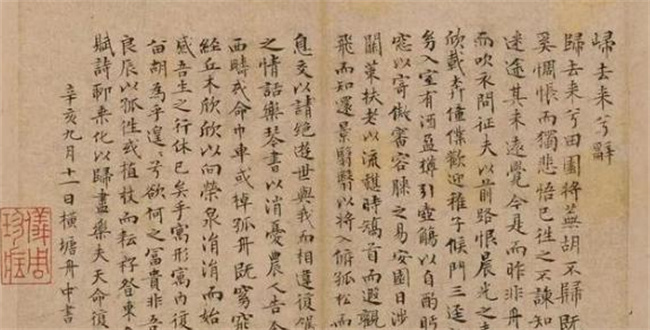 歸去来兮辭
歸去来兮田園将蕪胡不歸既
奚惆悵而獨悲悟已往之不諫知
迷途其未遠覺今是而昨非舟
而吹衣問征夫以前路恨晨光之
欣載奔僮僕歡迎稚子候門三迳
幼入室有酒盈樽引壺觴以自酌眄
窓以寄傲審容膝之易安園日涉
關策扶老以流憩時矯首而遐觀
飛而知還景翳翳以将入撫孤松而
息交以請絶遊世與我而相違復
之情話樂琴書以消憂農人告余
西疇或命巾車或棹孤舟既窈窕
經丘木欣欣以向榮泉涓涓而始
感吾生之行休已矣乎寓形寓内復
留胡為乎遑遑兮欲何之富貴非吾
良辰以孤往或植杖而耘耔登東
賦詩聊乗化以歸盡樂夫天命復
辛亥九月十一日横塘舟中書
儀周珍藏